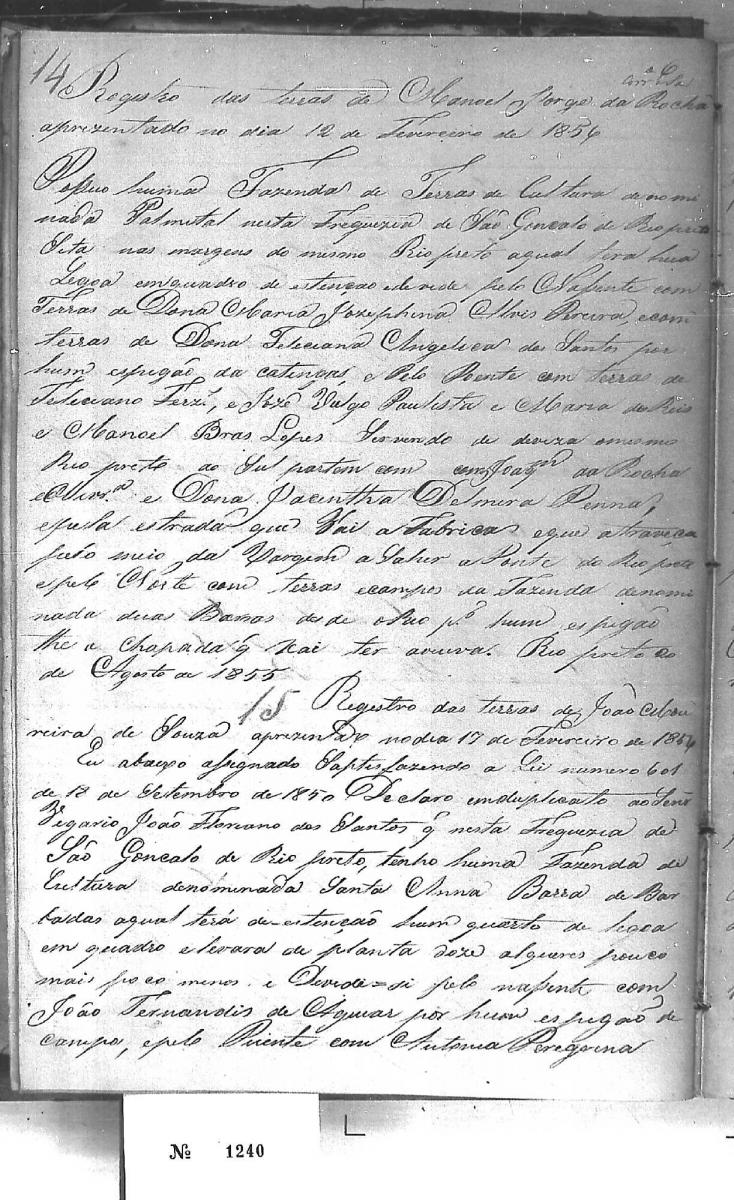 14
Registro das terras de Manoel Jorge da Rocha
aprezentado no dia 12 de Fevereiro de 1856
Posuo huma Fazenda de Terras de Cultura denomi
nada Palmital nesta Freguezia de São Goncalo do Rio preto
Sita nas margens do mesmo Rio preto aqual tera huã
Legoa em quadro de estencao edevide pelo Nasente com
Terras de Dona Maria Jozephina Alvis Pereira, ecom
terras de Dona Feleciana Angelica dos Santos por
hum espigão da catingas, e Pelo Poente com terras de
Feleciano Ferz.ª, e Jozé Valgo Paulista e Maria do Reis
e Manoel Bras Lopes Servindo de deviza omesmo
Rio preto ao Sul partem com Joaqm da Rocha
e Dona Jacintha Delmira Penna,
epela estrada que Vai a Fabrica eque atraveca
pelo meio da Vargem a Sahir a Ponte do Rio preto
epelo Norte com terras ecampos da Fazenda denomi
nada duas Barras desde oRio p.r hum espigão
the a chapada q̃ Vai ter Rio preto
de Agosto de 1855
15 Registro das terras de João Mou
reira de Souza aprezentado nodia 17 de Fevereiro de 1856
Eu abaixo asignado Saptisfazendo a Lei numero 601
de 18 de Setembro de 1850 Declaro emduplicato ao Senr
Vegario João Floriano dos Santos q̃ nesta Freguezia de
São Goncalo do Rio preto, tenho huma Fazenda de
Cultura denominada Santa Anna Barra do Bar
badas aqual terá de estencaõ hum quarto de legoa
em quadro elevara de planta doze alqueres pouco
mais poco menos e Devide=si pelo nasente com
João Fernandis de Aguiar por hum espigaõ de
campo, epelo Puente com Antonia Peregrina
№ 1240